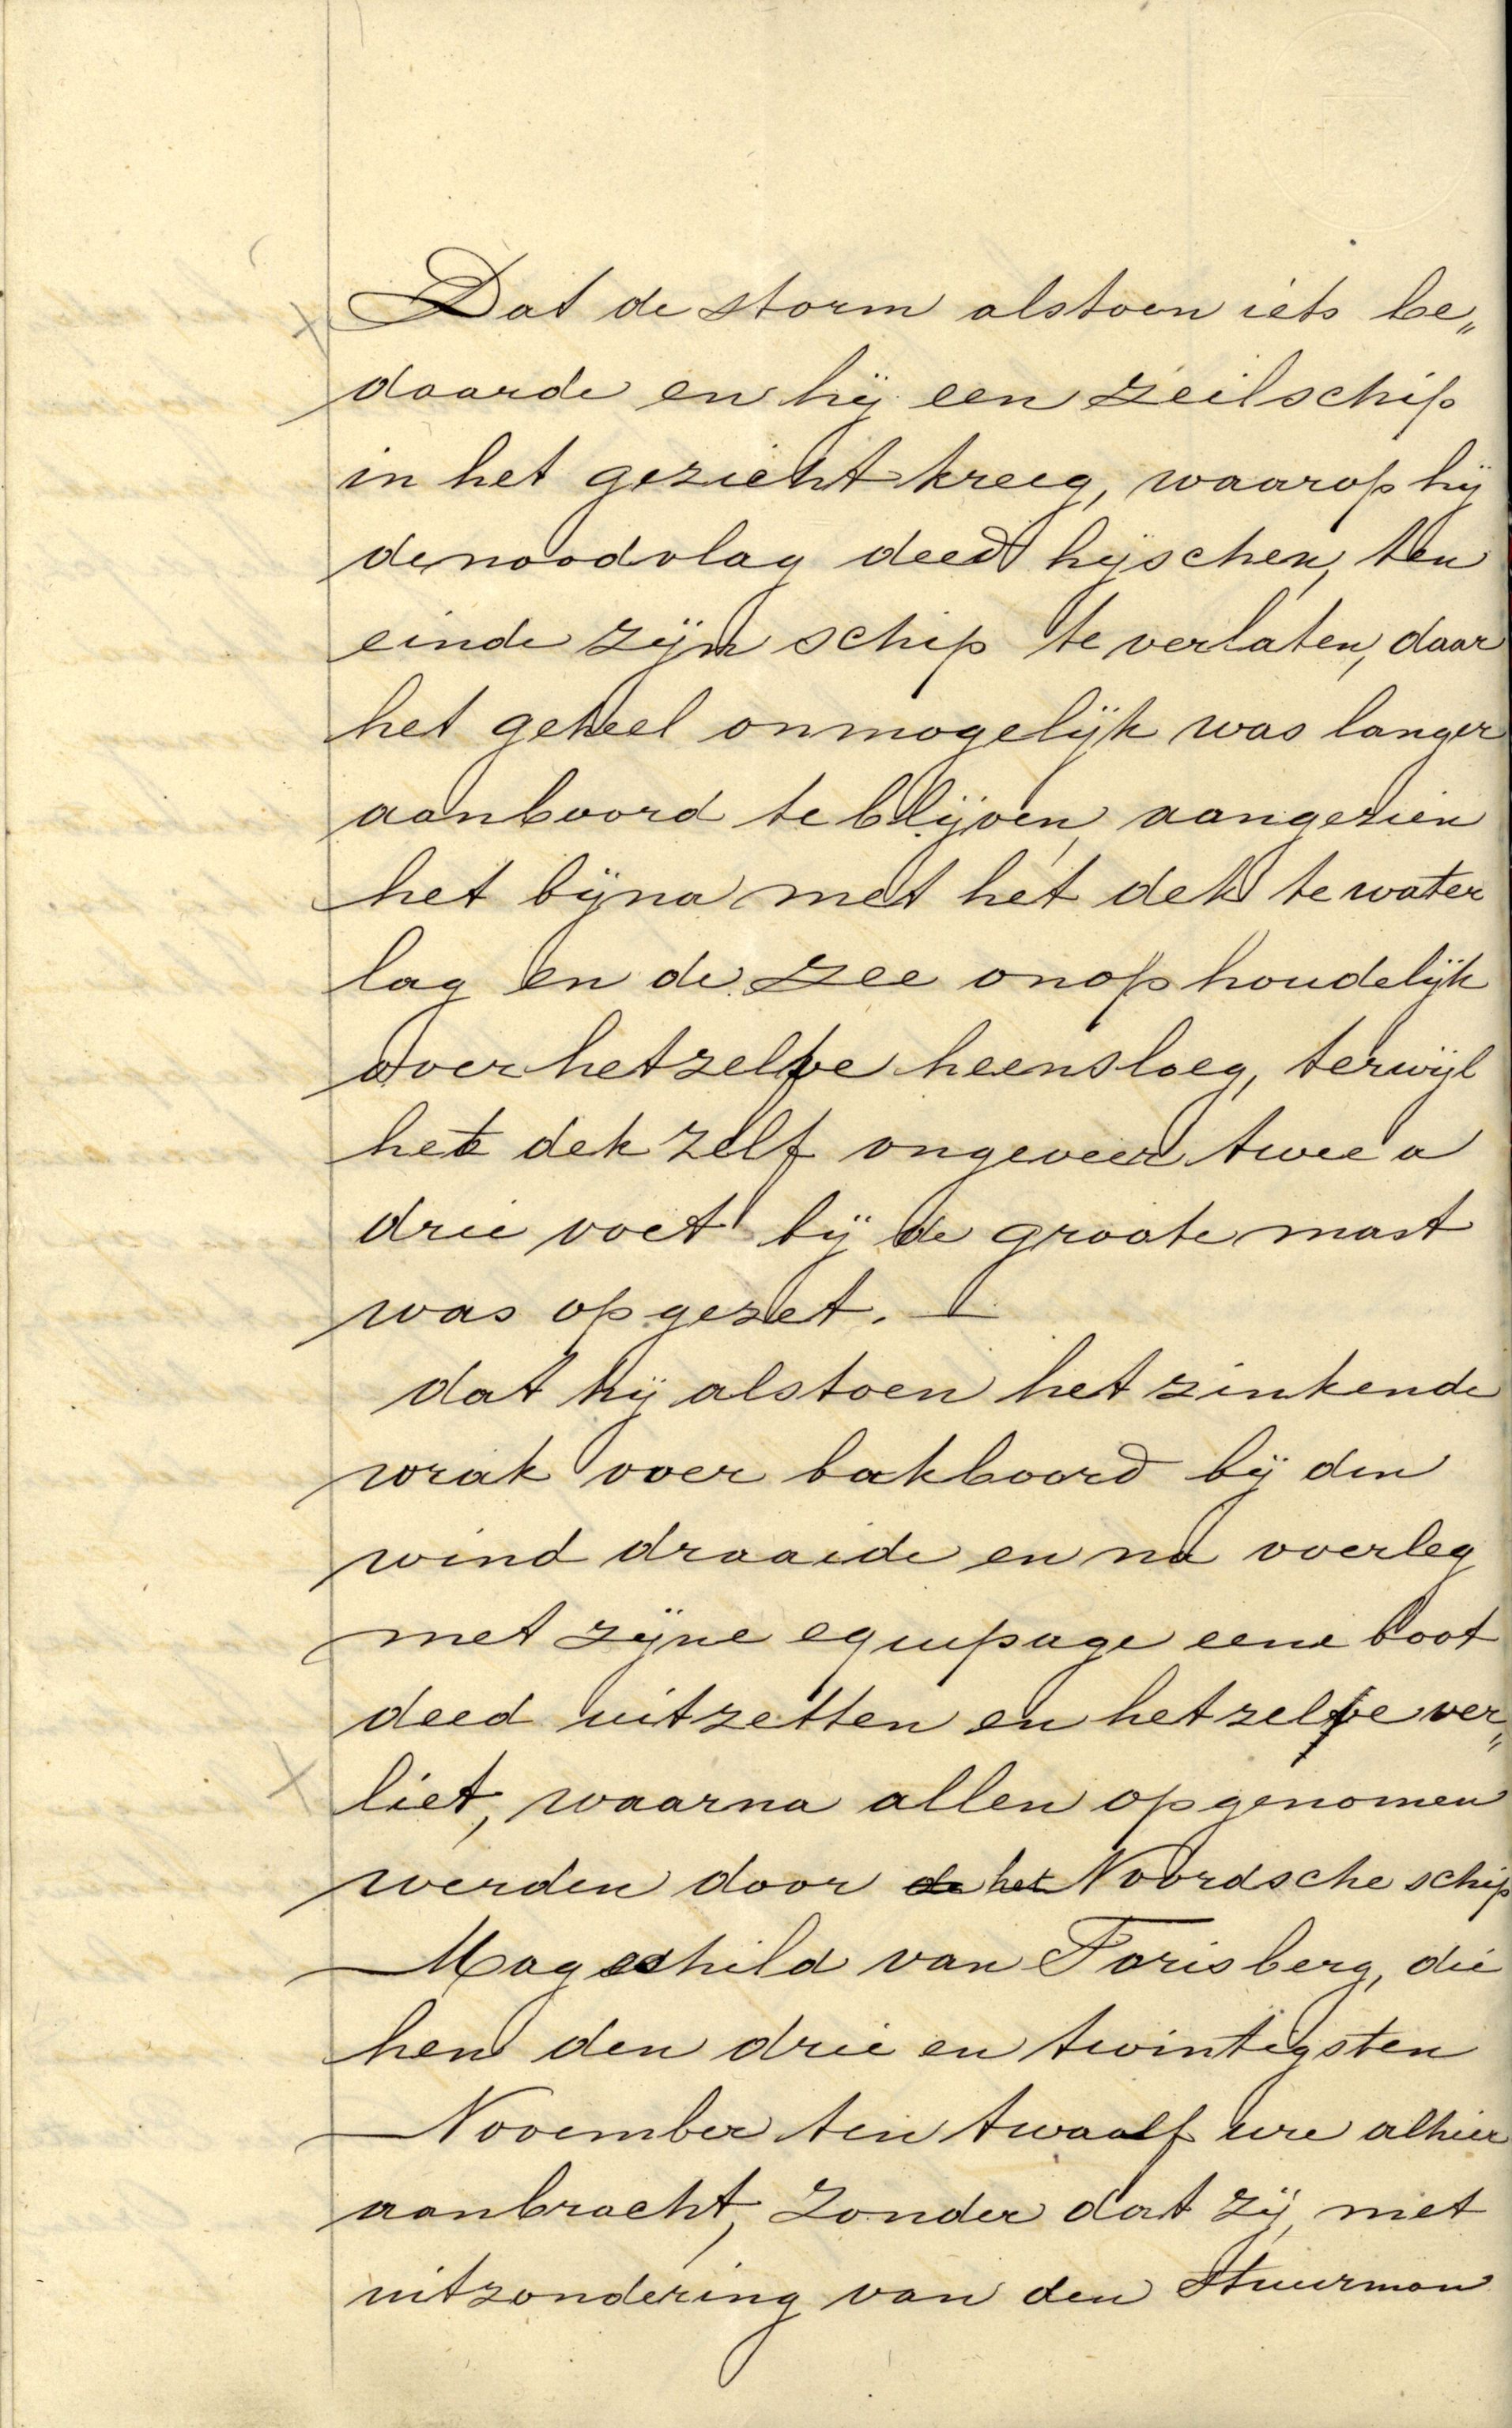 Dat de storm alstoen iets be„
daarde en hij een zeilschip
in het gezicht kreeg, waarop hij
de noodvlag deed hijschen, ten
einde zijn schip te verlaten, daar
het geheel onmogelijk was langer
aanboord te blijven, aangezien
het bijna met het dek te water
lag en de zee onophoudelijk
over hetzelve heensloeg, terwijl
het dek zelf ongeveer twee a
drie voet bij de groote mast
was opgezet. —
dat hij alstoen het zinkende
wrak over bakboord bij den
wind draaide en na overleg
met zijne equipage eene boot
deed uitzetten en hetzelve ver„
liet, waarna allen opgenomen
werden door de het Noordsche schip
Magschild van Farisberg, die
hen den drie en twintigsten
November ten twaalf ure alhier
aanbracht, zonder dat zij, met
uitzondering van den Stuurman